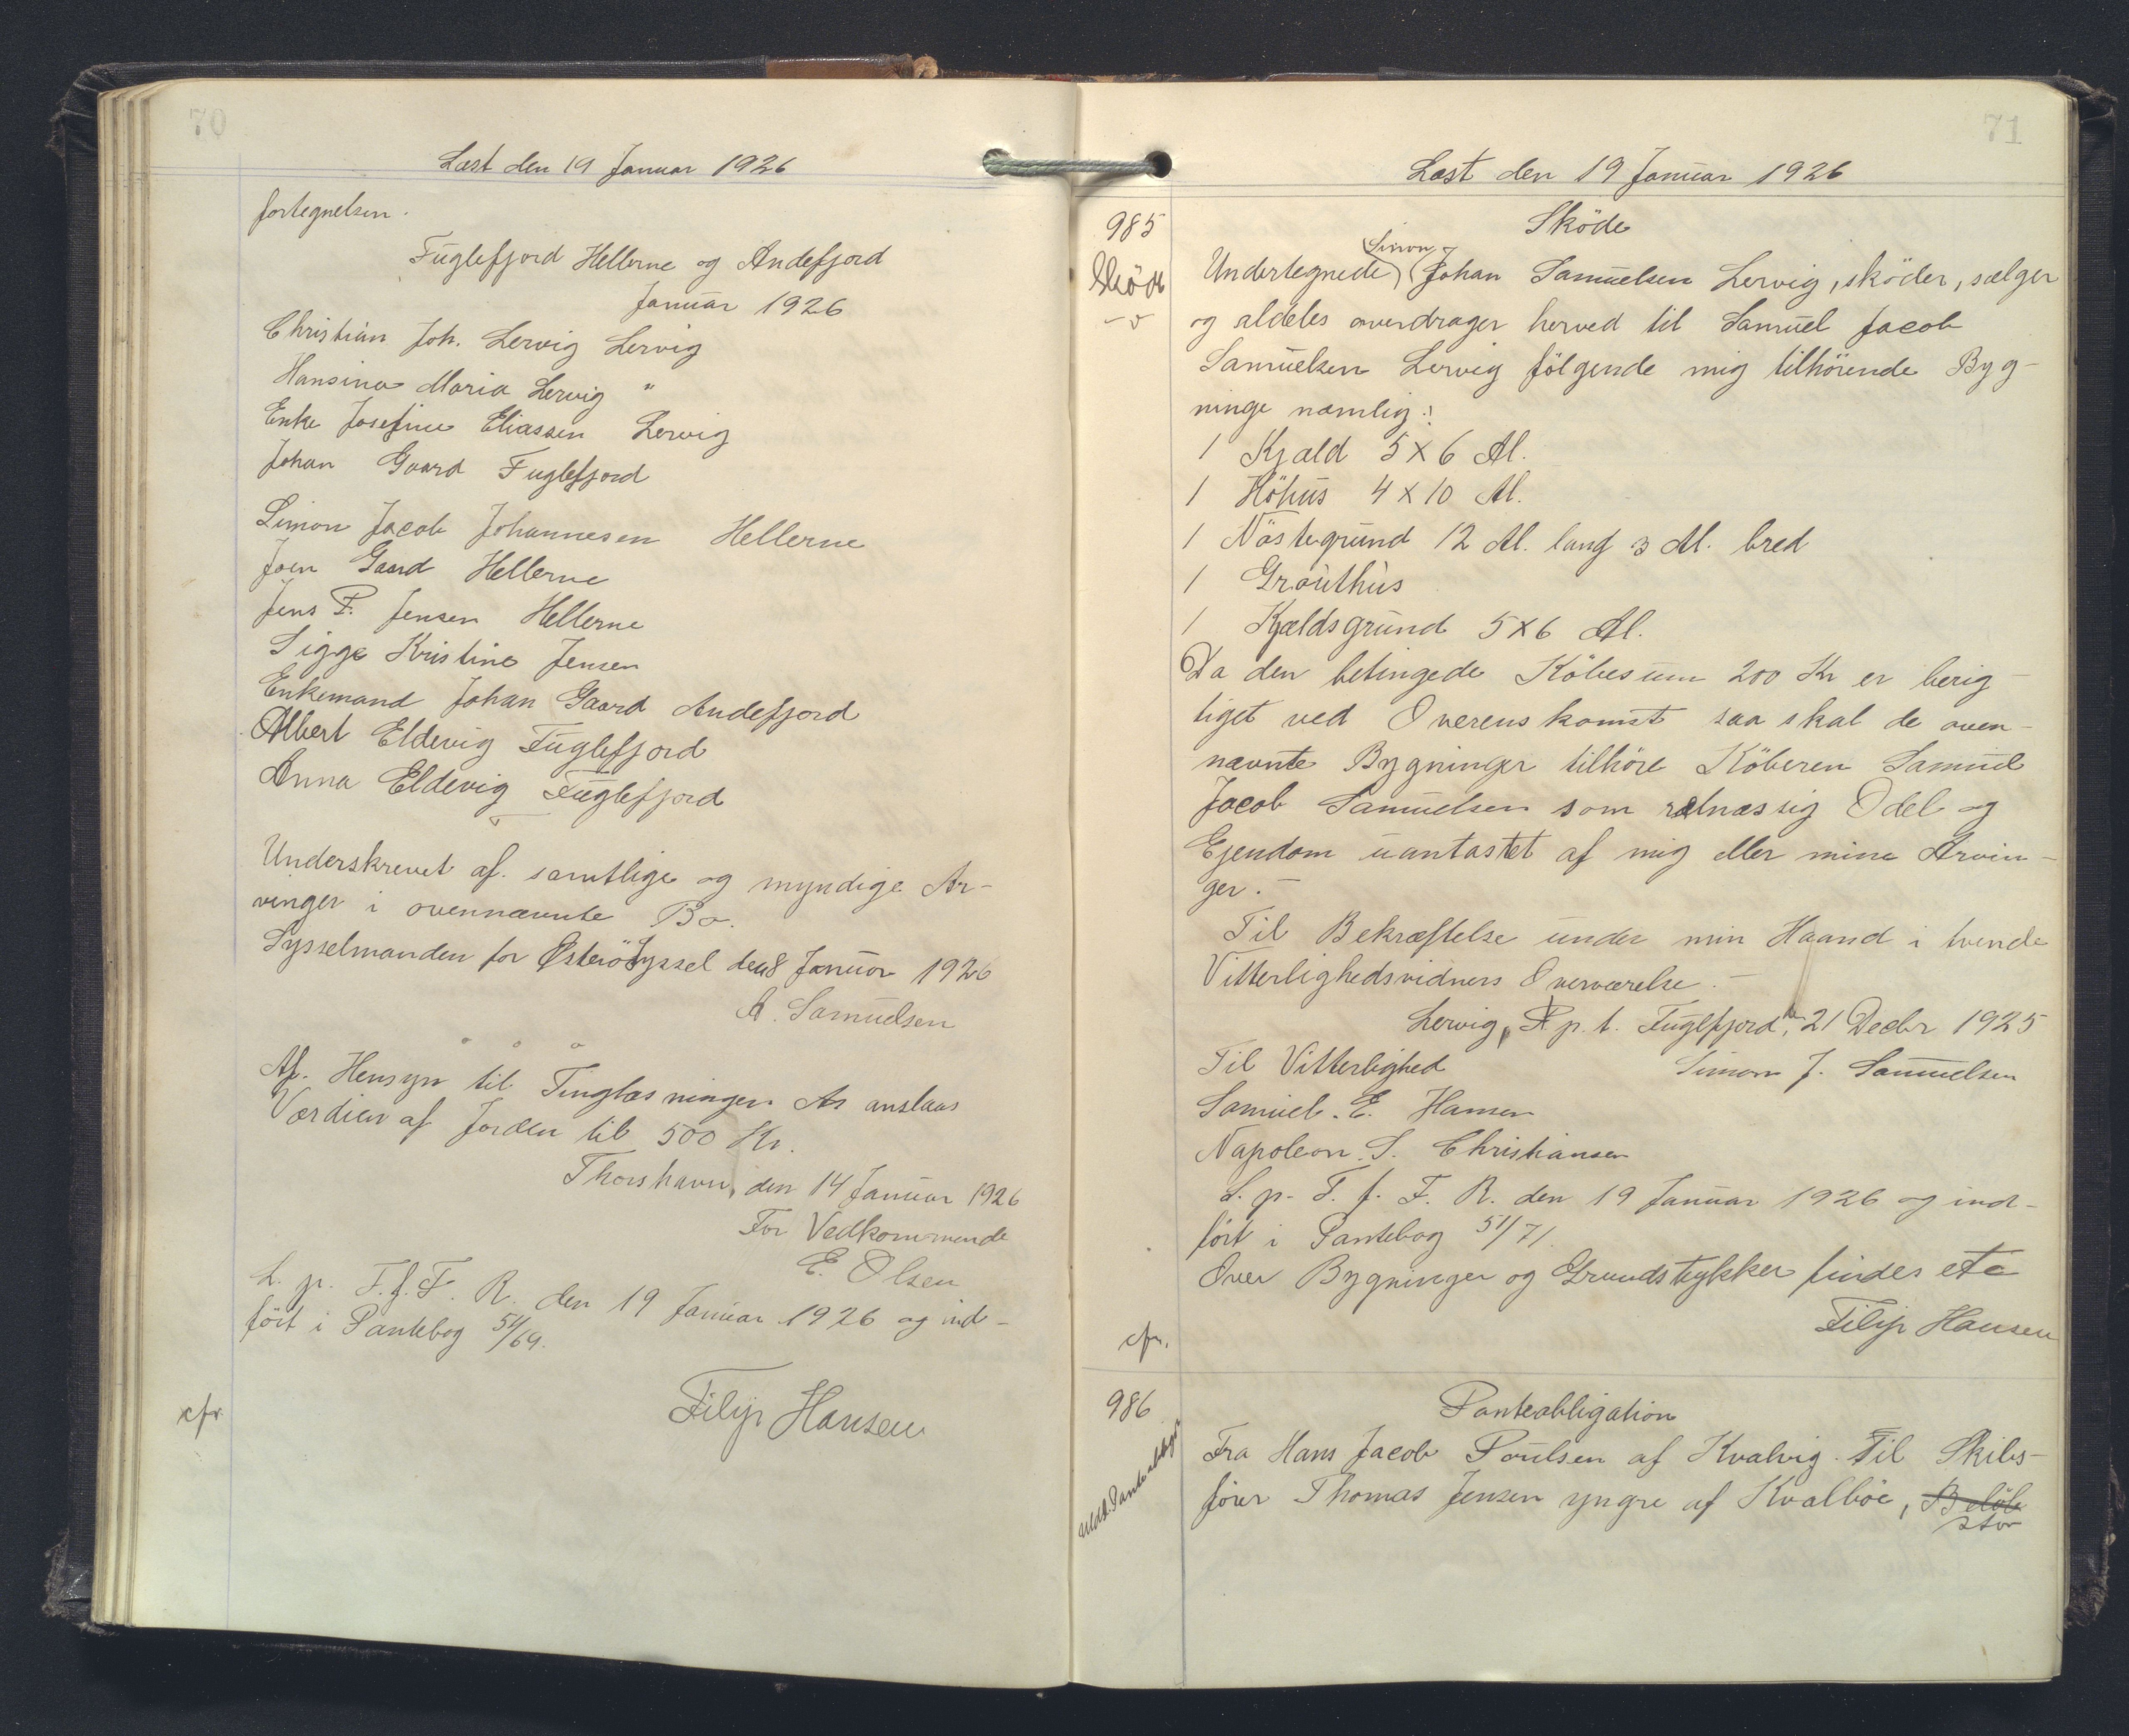 70
Læst den 19 Januar 1926
fortegnelsen.
Fuglefjord Hellerne og Andefjord
Januar 1926
Christian Joh. Lervig Lervig
Hansina Maria Lervig "
Enke Josefine Eliassen Lervig
Johan Gaard Fuglefjord
Simon Jacob Johannesen Hellerne
Joen Gaard Hellerne
Jens P. Jensen Hellerne
Sigga Kristine Jensen
Enkemand Johan Gaard Andefjord
Albert Eldevig Fuglefjord
Anna Eldevig Fuglefjord
Underskrevet af samtlige og myndige Ar-
vinger i ovennævnte Bo.
Sysselmanden for Østerö Syssel den 8 Januar 1926
A. Samuelsen
Af Hensyn til Tinglæsningen anslaas
Værdien af Jorden til 500 Kr.
Thorshavn, den 14 Januar 1926
For Vedkommende
E. Olsen
L. p. T. f. F. R. den 19 Januar 1926 og ind-
fört i Pantebog 51/69.
cfr.
Filip Hansen
71
Læst den 19 Januar 1926
985
Sköde
Sköde
Undertegnede Simon Johan Samuelsen Lervig, sköder, sælger
og aldeles overdrager herved til Samuel Jacob
Samuelsen Lervig fölgende mig tilhörende Byg-
ninge namlig:
1 Kjald 5 X 6 Al.
1 Höhus 4 X 10 Al.
1 Nöstegrund 12 Al. lang 3 Al. bred
1 Grouthus
1 Kjældsgrund 5 X 6 Al.
Da den betingede Köbesum 200 Kr er berig-
tiget ved Overenskomst saa skal de oven-
nævnte Bygninger tilhöre Köberen Samuel
Jacob Samuelsen som retmæssig Odel og
Ejendom uantastet af mig eller mine Arvin-
ger.-
Til Bekræftelse under min Haand i tvende
Vitterlighedsvidners Overværelse.-
Lervig, p. t. Fuglefjord, den 21 Decbr 1925
Til Vitterlighed Simon J. Samuelsen
Samuel. E. Hansen
Napoleon S. Christiansen
L. p. T. f. F. R. den 19 Januar 1926 og ind-
fört i Pantebog 51/71.
Over Bygninger og Grundstykker findes etc
cfr.
Filip Hansen
986
Panteobligation
Fra Hans Jacob Poulsen af Kvalvig. Til Skibs-
förer Thomas Jensen yngre af Kvalböe, Belöb
stor